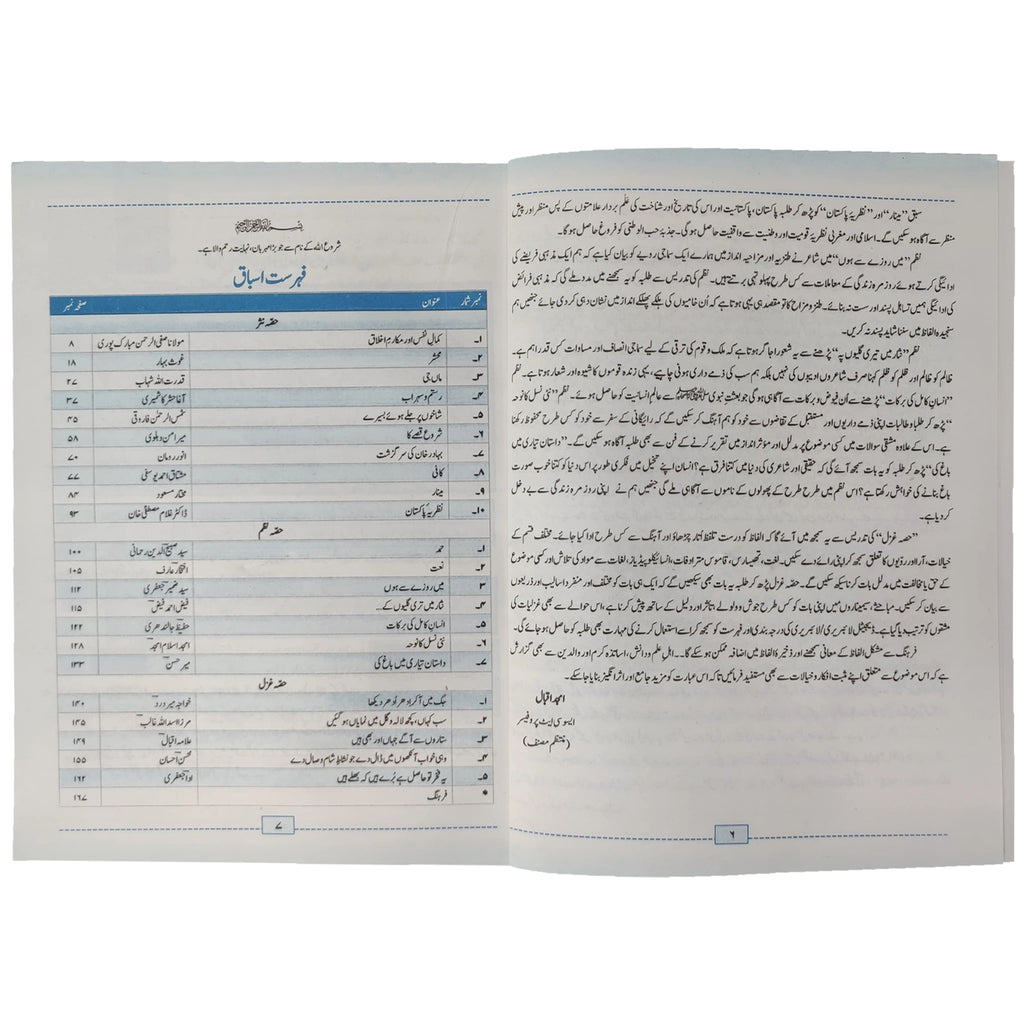 سبق ”مینار“ اور ”نظریۂ پاکستان“ کو پڑھ کر طلبہ پاکستان، پاکستانیت اور اس کی تاریخ اور شناخت کی عَلم بردار علامتوں کے پس منظر اور پیش
منظر سے آگاہ ہو سکیں گے۔ اسلامی اور مغربی نظریۂ قومیت اور وطنیت سے واقفیت حاصل ہو گی۔ جذبۂ حب الوطنی کو فروغ حاصل ہو گا۔
نظم ”میں روزے سے ہوں“ میں شاعر نے طنزیہ اور مزاحیہ انداز میں ہمارے ایک سماجی رویے کو بیان کیا ہے کہ ہم ایک مذہبی فریضے کی
ادائیگی کرتے ہوئے روز مرہ زندگی کے معاملات سے کس طرح پہلو تہی برتتے ہیں۔ نظم کی تدریس سے طلبہ کو یہ سمجھنے میں مدد ملے گی کہ مذہبی فرائض
کی ادائیگی ہمیں تساہل پسند اور سست نہ بنائے۔ طنز و مزاح کا تو مقصد ہی یہی ہوتا ہے کہ اُن خامیوں کی ہلکے پھلکے انداز میں نشان دہی کر دی جائے جنھیں ہم
سنجیدہ الفاظ میں سننا شاید پسند نہ کریں۔
نظم ”نثار میں تیری گلیوں پہ“ پڑھنے سے یہ شعور اجاگر ہوتا ہے کہ ملک و قوم کی ترقی کے لیے سماجی انصاف اور مساوات کس قدر اہم ہے۔
ظالم کو ظالم اور ظلم کو ظلم کہنا صرف شاعروں ادیبوں کی نہیں بلکہ ہم سب کی ذمے داری ہونی چاہیے، یہی زندہ قوموں کا شیوہ اور شعار ہوتا ہے۔ نظم
”انسانِ کامل کی برکات“ پڑھنے سے اُن فیوض و برکات سے آگاہی ہو گی جو بعثتِ نبوی ﷺ سے عالمِ انسانیت کو حاصل ہوئے۔ نظم ”نئی نسل کا نوحہ
“ پڑھ کر طلبہ و طالبات اپنی ذمے داریوں اور مستقبل کے تقاضوں سے خود کو ہم آہنگ کر سکیں گے کہ رائیگانی کے سفر سے خود کو کس طرح محفوظ رکھنا
ہے۔ اس کے علاوہ مشقی سوالات میں کسی موضوع پر مدلل اور مؤثر انداز میں تقریر کرنے کے فن سے بھی طلبہ آگاہ ہو سکیں گے۔ ”داستان تیاری میں
باغ کی“ پڑھ کر طلبہ کو یہ بات سمجھ آئے گی کہ حقیقی اور شاعری کی دنیا میں کتنا فرق ہے؟ انسان اپنے تخیل میں فکری طور پر اس دنیا کو کتنا خوب صورت
باغ بنانے کی خواہش رکھتا ہے؟ اس نظم میں طرح طرح کے پھولوں کے ناموں سے آگاہی ملے گی جنھیں ہم نے اپنی روز مرہ زندگی سے بے دخل
کر دیا ہے۔
”حصہ غزل“ کی تدریس سے یہ سمجھ میں آئے گا کہ الفاظ کو درست تلفظ اُتار چڑھاؤ اور آہنگ سے کس طرح ادا کیا جائے۔ مختلف قسم کے
خیالات، آرا اور رویوں کا تعلق سمجھ کر اپنی رائے دے سکیں۔ لغت، تھیسارس، قاموسِ مترادفات، انسائیکلوپیڈیاز، لغات سے مواد کی تلاش اور کسی موضوع
کے حق یا مخالفت میں مدلل بات کرنا سیکھ سکیں گے۔ حصہ غزل پڑھ کر طلبہ یہ بات بھی سیکھیں گے کہ ایک ہی بات کو مختلف اور منفرد اسالیب اور ذریعوں
سے بیان کر سکیں۔ مباحثے، سیمیناروں میں اپنی بات کو کس طرح جوش و ولولے، تاثر اور دلیل کے ساتھ پیش کرنا ہے، اس حوالے سے بھی غزلیات کی
مشقوں کو ترتیب دیا گیا ہے۔ ڈیجیٹل لائبریری/لائبریری کی درجہ بندی اور فہرست کو سمجھ کر اسے استعمال کرنے کی مہارت بھی طلبہ کو حاصل ہو جائے گی۔
فرہنگ سے مشکل الفاظ کے معانی سمجھنے اور ذخیرۂ الفاظ میں اضافہ ممکن ہو سکے گا۔۔ اہلِ علم و دانش، اساتذہ کرم اور والدین سے بھی گزارش
ہے کہ اس موضوع سے متعلق اپنے مثبت افکار و خیالات سے بھی مستفید فرمائیں تاکہ اس عبارت کو مزید جامع اور اثر انگیز بنایا جا سکے۔
امجد اقبال
ایسوسی ایٹ پروفیسر
(منتظم مصنف)
۶
شروع اللہ کے نام سے جو بڑا مہربان، نہایت رحم والا ہے۔
فہرست اسباق
نمبر شمار عنوان صفحہ نمبر
حصّہ نثر
۱۔ کمالِ نفس اور مکارمِ اخلاق مولانا صفی الرحمٰن مبارک پوری ۸
۲۔ محشر غوث بہار ۱۸
۳۔ ماں جی قدرت اللہ شہاب ۲۷
۴۔ رستم و سہراب آغا حشر کاشمیری ۳۷
۵۔ شاخوں پر جلے ہوئے بسیرے شمس الرحمٰن فاروقی ۴۵
۶۔ شروع قصے کا میر امن دہلوی ۵۸
۷۔ بہادر خان کی سرگزشت انور رومان ۷۰
۸۔ کافی مشتاق احمد یوسفی ۷۷
۹۔ مینار مختار مسعود ۸۴
۱۰۔ نظریۂ پاکستان ڈاکٹر غلام مصطفیٰ خان ۹۳
حصّہ نظم
۱۔ حمد سید صبیح الدین رحمانی ۱۰۰
۲۔ نعت افتخار عارف ۱۰۵
۳ میں روزے سے ہوں سید ضمیر جعفری ۱۱۲
۴۔ نثار میں تری گلیوں کے... فیض احمد فیض ۱۱۵
۵۔ انسانِ کامل کی برکات حفیظ جالندھری ۱۲۲
۶۔ نئی نسل کا نوحہ امجد اسلام امجد ۱۲۸
۷۔ داستان تیاری میں باغ کی میر حسن ۱۳۳
حصّہ غزل
۱۔ جگ میں آ کر اِدھر اُدھر دیکھا خواجہ میر درد ۱۴۰
۲۔ سب کہاں، کچھ لالہ و گل میں نمایاں ہو گئیں مرزا اسد اللہ غالب ۱۴۵
۳۔ ستاروں سے آگے جہاں اور بھی ہیں علامہ اقبال ۱۴۹
۴۔ وہی خواب آنکھوں میں ڈال دے جو نشاطِ شام وصال دے محسن احسان ۱۵۵
۵۔ یہ فخر تو حاصل ہے بُرے ہیں کہ بھلے ہیں ادا جعفری ۱۶۲
* فرہنگ ۱۶۷
۷